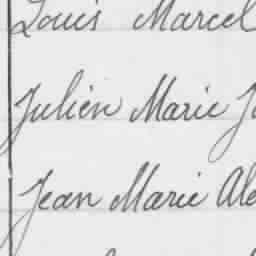 Louis Marcel
Julien Marie J
Jean Marie Ale